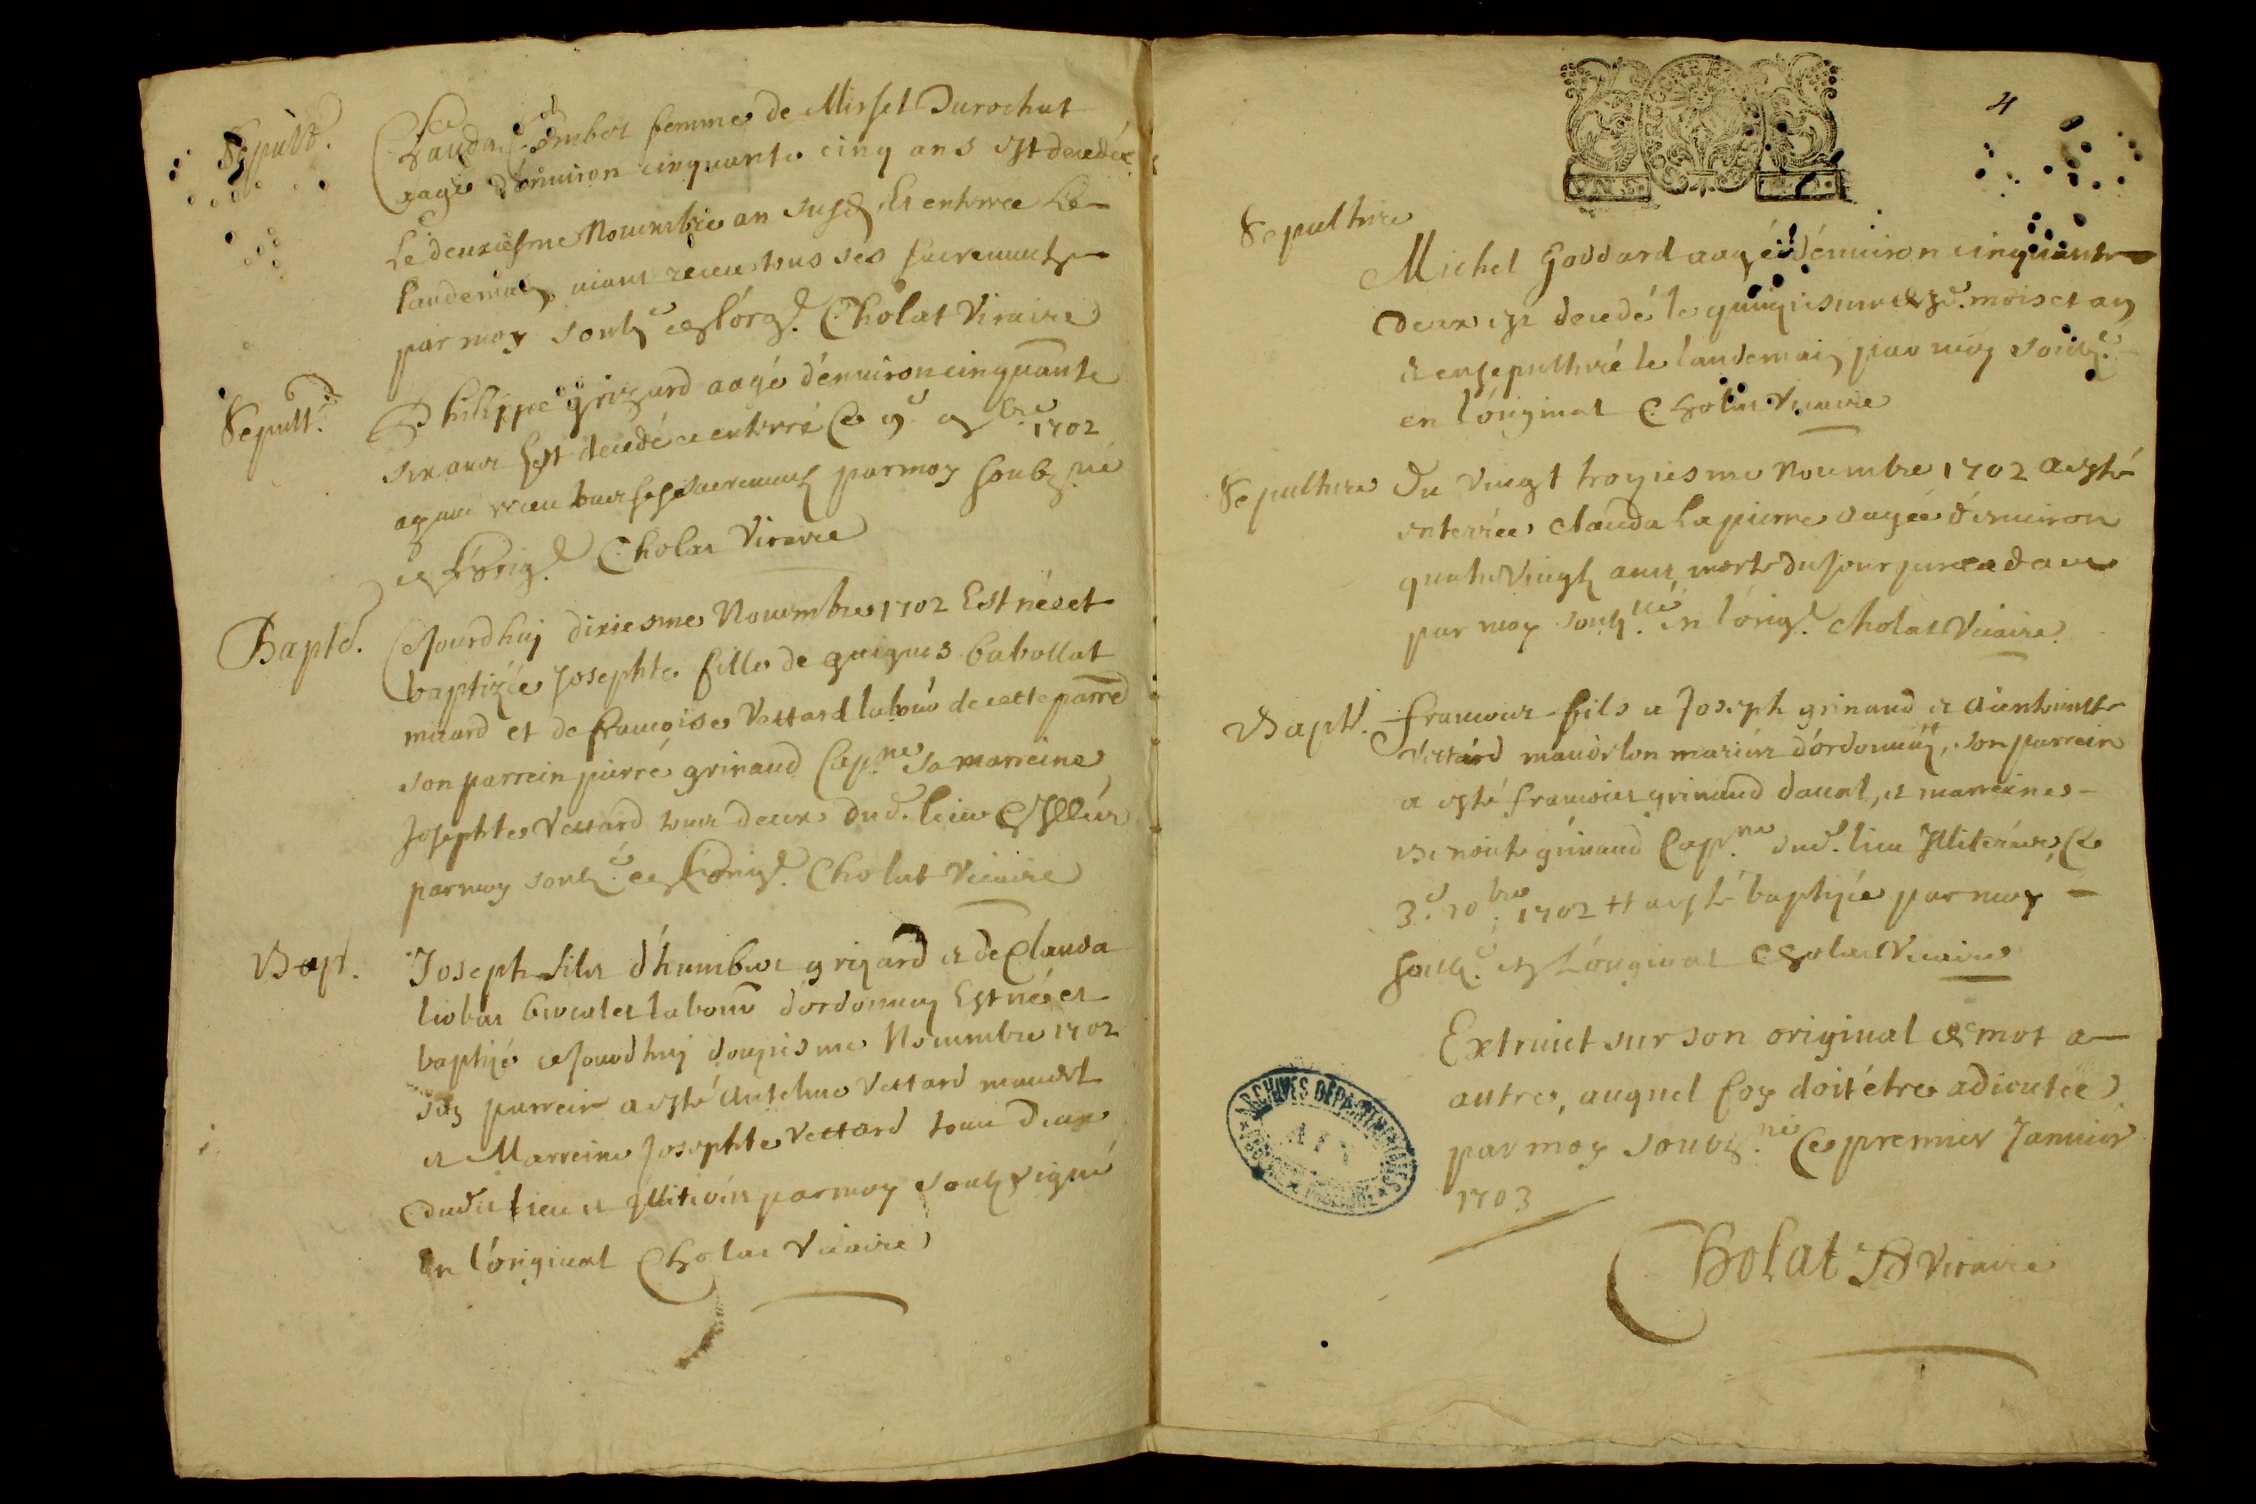 Sepult.
Clauda femme de Mirset Durochat
eagée d'environ cinquante cinq ans est decedée
Le deuxiesme Novembre an susd. Et enterrée Le
landemain aiant receu tous ses sacrements
par moy soub.é en l'org. Cholat Vicaire
Sepult.
Philippe grizard aagé d'environ cinquante
six ans Est decedé et enterré Ce 9e 9bre 1702
ayant receu tous ses sacrements par moy soubz.né
en l'orig. Cholat Vicaire
Bapte.
Cejourdhuy dixiesme Novembre 1702 Est née et
baptizée Josephte fille de guigues babollat
micard et de francoise Vettard labour de cette parre
son parrein pierre grinand Cap.ne sa marreine
Josephte Vettard tous deux dud. lieu Illér
par moy soub.é en l'orig. Cholat Vicaire
Bap.
Joseph fils d'humbert grizard et de Clauda
labour d'ordonnaz Est né et
baptizé cejourdhuy douziesme Novembre 1702
son parrein a esté Antelme Vettard mandrl
et Marreine Josephte Vettard tous deux
dudit lieu et illiterés par moy soubsigné
En l'original Cholat Vicaire
4
Sepulture
Michel Goddard aagé d'environ cinquante
deux est decedé le quinziesme desd. mois et an
et ensepulturé le landemain par moy soub.é
en l'original Cholat Vicaire
Sepulture
Du Vingt troziesme Novembre 1702 a esté
enterrée Clauda Lapierre aagée d'environ
quatre Vingtz ans, morte du jour
par moy soub.né en l'orig. Cholat Vicaire
Bapt.
francois fils a Joseph grinand et Anthoinette
Vettard mandrlon mariés d'ordonnaz, son parrein
a esté francois grinand daval, et marreine
Benoite grinand Cap.ne dud. lieu Illiterés, Ce
3.e 10bre 1702 # a esté baptizée par moy
soub.é en L'original Cholat Vicaire
Extraict sur son original de mot a
autre, auquel foy doit être adioutée
par moy soubz.né Ce premier Janvier
1703
Cholat Vicaire
ARCHIVES DÉPARTEMENTALES